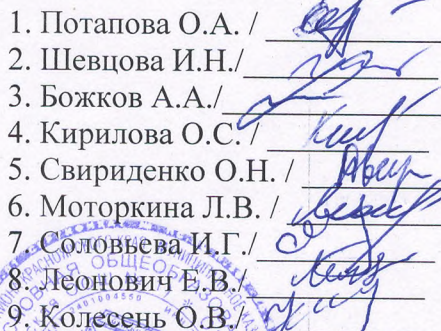 1. Потапова О.А. /
2. Шевцова И.Н./
3. Божков А.А./
4. Кирилова О.С. /
5. Свириденко О.Н. /
6. Моторкина Л.В. /
7. Соловьева И.Г./
8. Леонович Е.В./
9. Колесень О.В./